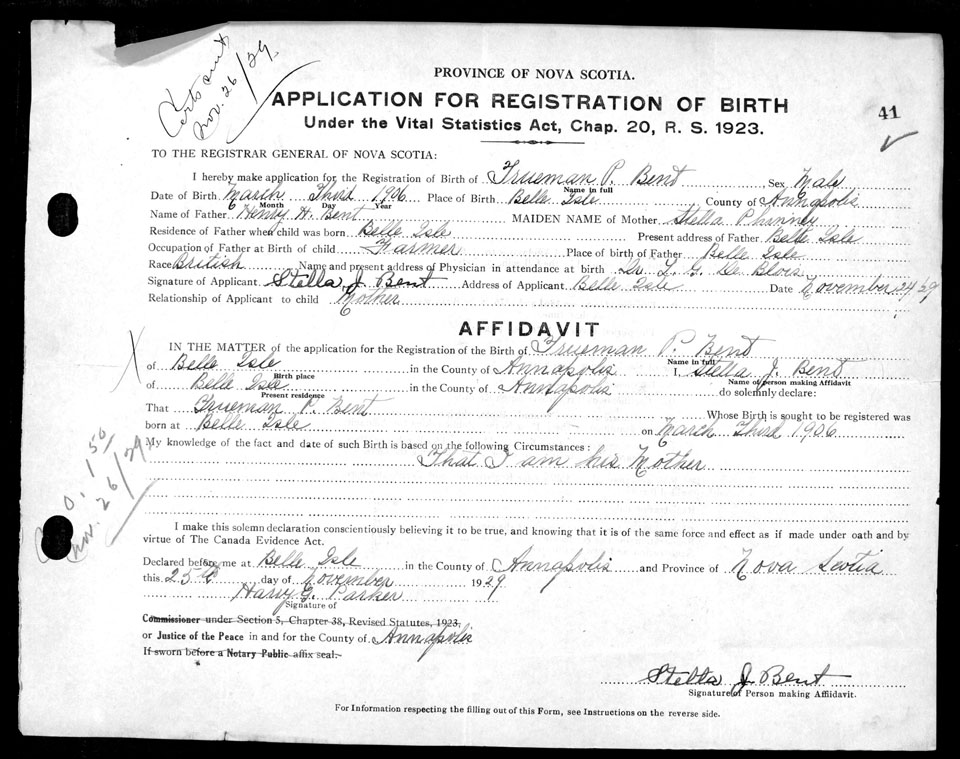 Certs sent
Nov. 26/29.
PROVINCE OF NOVA SCOTIA.
APPLICATION FOR REGISTRATION OF BIRTH
41
Under the Vital Statistics Act, Chap. 20, R. S. 1923.
TO THE REGISTRAR GENERAL OF NOVA SCOTIA:
I hereby make application for the Registration of Birth of Trueman P. Bent Sex Male
Name in full
Date of Birth March Third 1906 Place of Birth Belle Isle County of Annapolis
Month Day Year
Name of Father Henry H. Bent MAIDEN NAME of Mother Stella Phinney
Residence of Father when child was born Belle Isle Present address of Father Belle Isle
Occupation of Father at Birth of child Farmer Place of birth of Father Belle Isle
Race British Name and present address of Physician in attendance at birth Dr. L. G. De Blois
Signature of Applicant Stella J. Bent Address of Applicant Belle Isle Date November 24/29
Relationship of Applicant to child Mother
AFFIDAVIT
IN THE MATTER of the application for the Registration of the Birth of Trueman P. Bent
Name in full
of Belle Isle in the County of Annapolis I, Stella J. Bent
Birth place Name of person making Affidavit
of Belle Isle in the County of Annapolis do solemnly declare:
Present residence
That Trueman P. Bent Whose Birth is sought to be registered was
born at Belle Isle on March Third 1906
My knowledge of the fact and date of such Birth is based on the following Circumstances:
That I am his Mother
1 50
Nov. 26/29
I make this solemn declaration conscientiously believing it to be true, and knowing that it is of the same force and effect as if made under oath and by
virtue of The Canada Evidence Act.
Declared before me at Belle Isle in the County of Annapolis and Province of Nova Scotia
this 25th day of November 1929
Harry G. Parker
Signature of
Commissioner under Section 5, Chapter 38, Revised Statutes, 1923,
or Justice of the Peace in and for the County of Annapolis
If sworn before a Notary Public affix seal.
Stella J. Bent
Signature of Person making Affidavit.
For Information respecting the filling out of this Form, see Instructions on the reverse side.